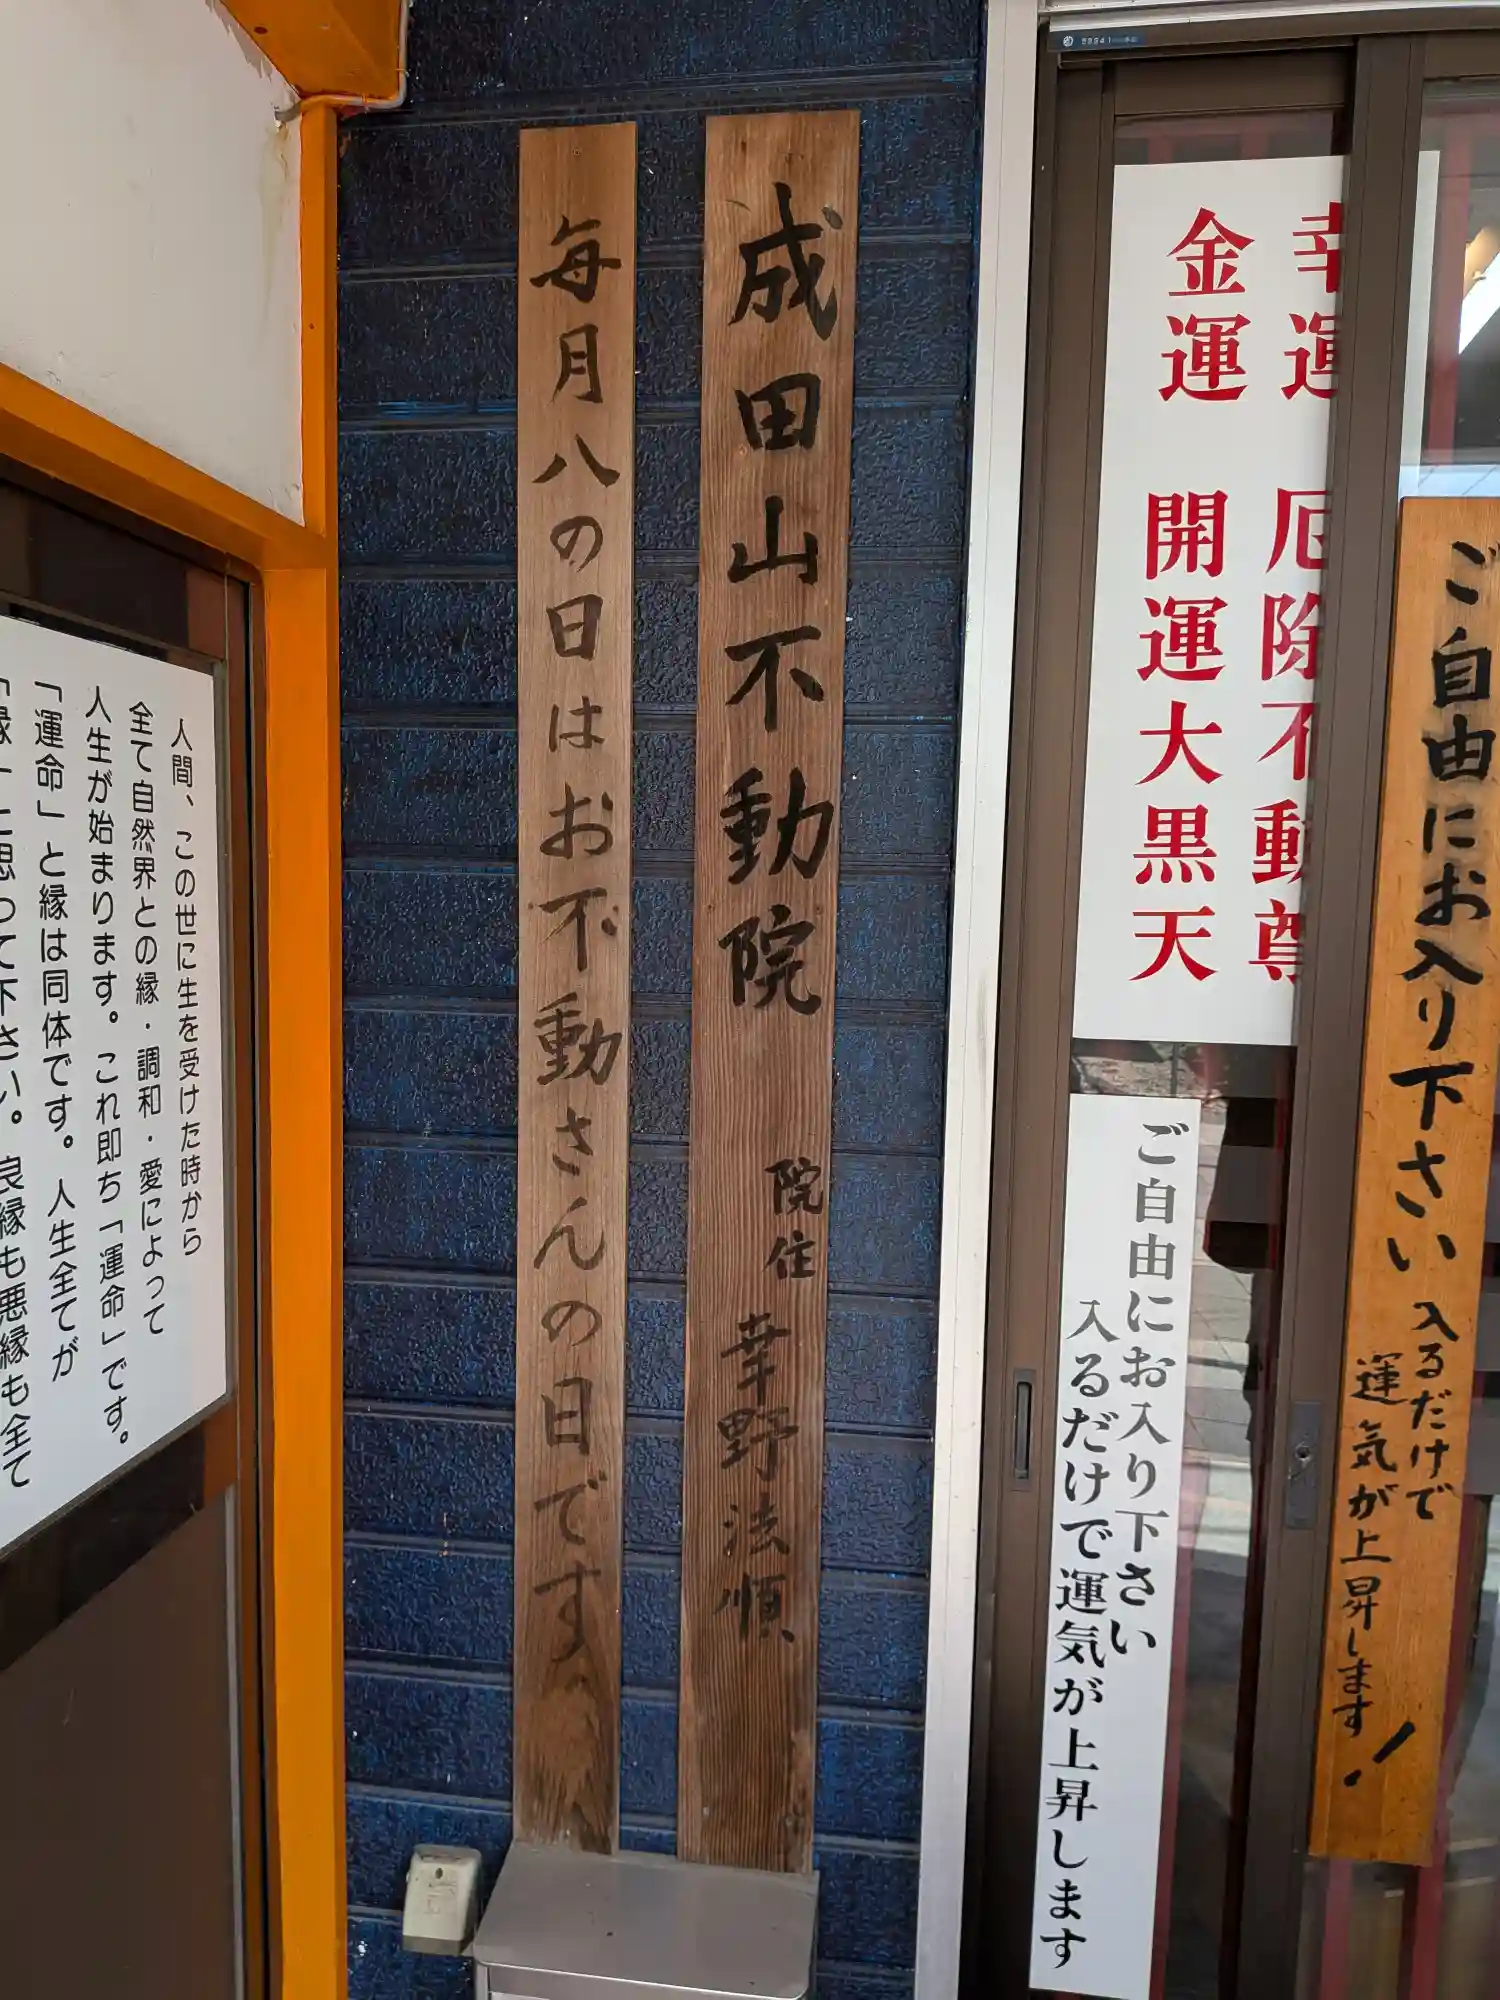 ご自由にお入り下さい
入るだけで
運気が上昇します!
幸運 厄除不動尊
金運 開運大黒天
ご自由にお入り下さい
入るだけで運気が上昇します
成田山不動院 院住 幸野法順
毎月八の日はお不動さんの日です
人間、この世に生を受けた時から
全て自然界との縁・調和・愛によって
人生が始まります。これ即ち「運命」です。
「運命」と縁は同体です。人生全てが
「縁」と思って下さい。良縁も悪縁も全て